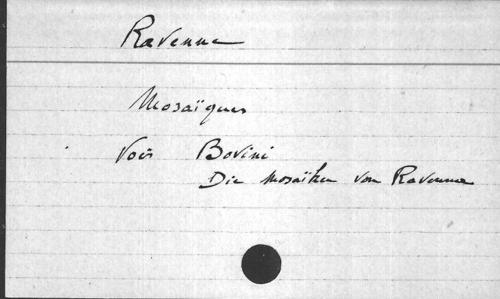 Ravenna
Mosaïques
Voir Bovini
Die Mosaïken von Ravenna